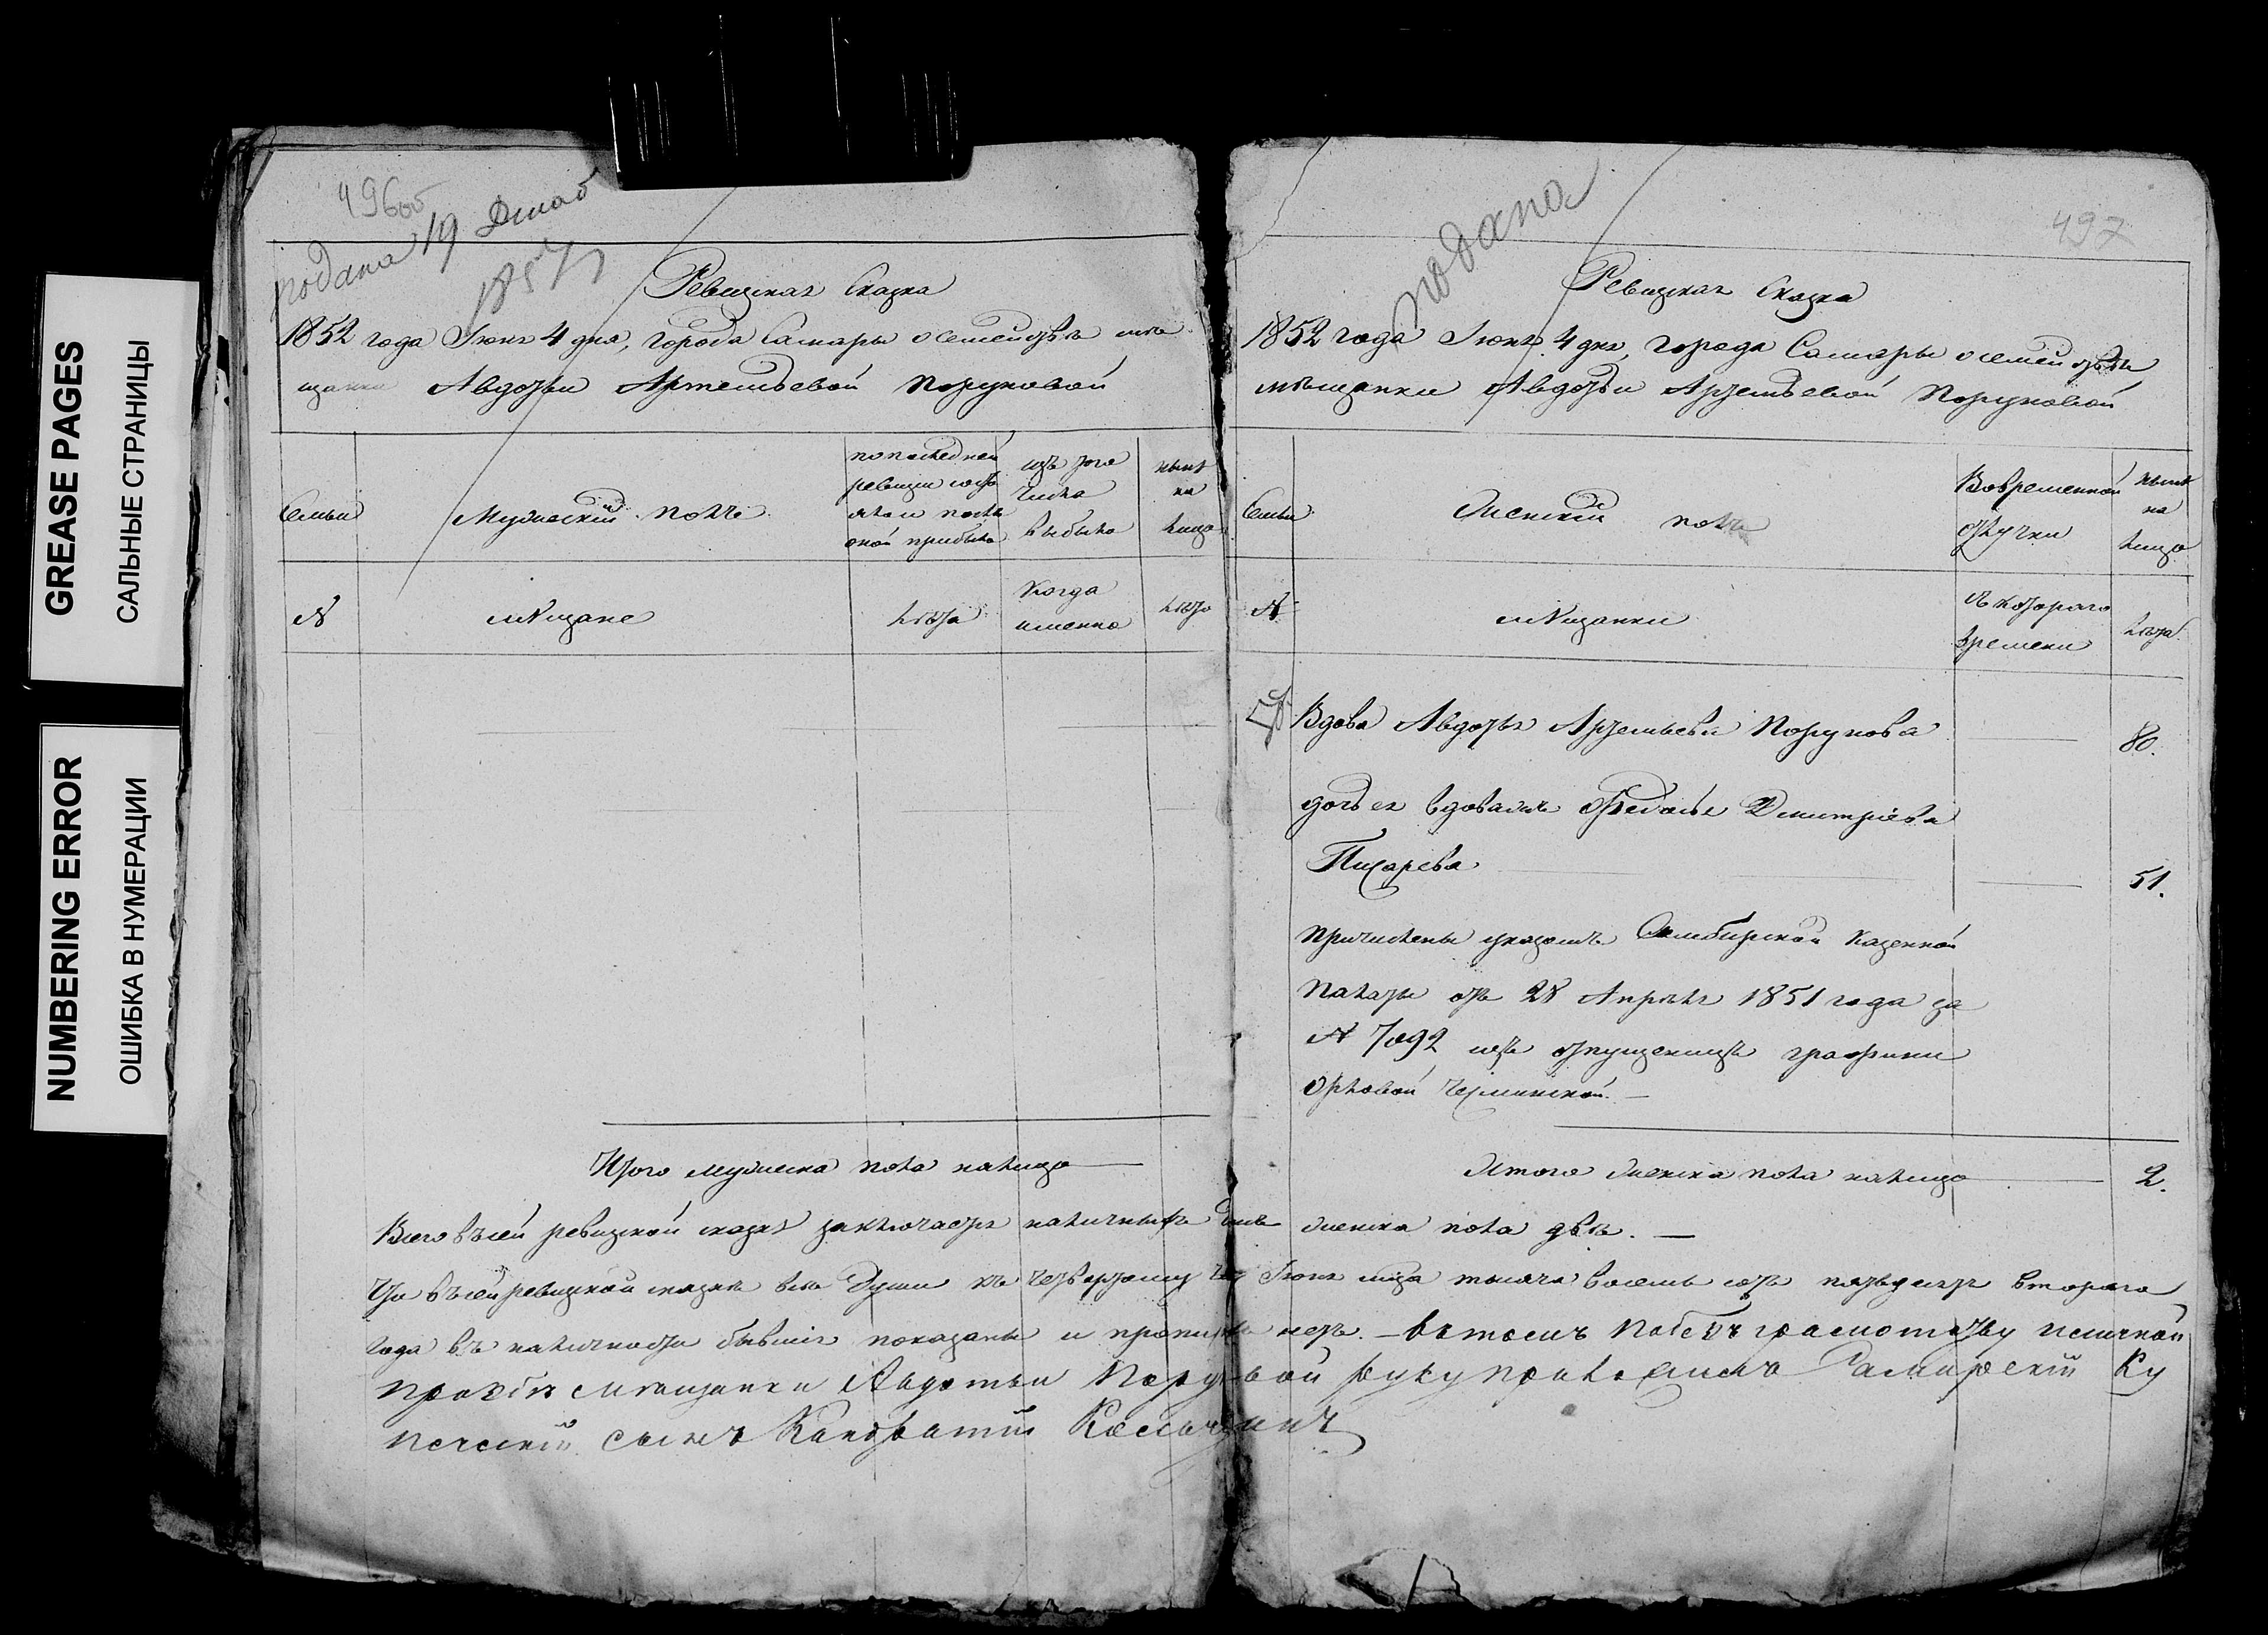 GREASE PAGES
САЛЬНЫЕ СТРАНИЦЫ
NUMBERING ERROR
ОШИБКА В НУМЕРАЦИИ
496об
подана 19 Декаб
1857
Ревизская Сказка
1852 года Іюня 4 дня, города Самары о семействѣ мѣ
щанки Авдотьи Артемьевой Поруновой
Семьи
Мужескій полъ
по последней
ревизіи состо
яло и послѣ
оной прибыло
изъ того
числа
выбыло
нынѣ
на
лицо
N
мѣщане
лѣта
Когда
именно
лѣта
Итого мужеска пола налицо
подана
497
Ревизская Сказка
1852 года Іюня 4 дня, города Самары о семействѣ
мѣщанки Авдотьи Артемьевой Поруновой
Семьи
Женскій полъ
Во временной
отлучки
нынѣ
на
лицо
N
мѣщанки
съ котораго
времени
лѣта
Вдова Авдотья Артемьева Порунова 80.
дочь ея вдовая Федосья Дмитріева
Писарева 51.
причислены указомъ Симбирской Казенной
Палаты отъ 28 Апрѣля 1851 года за
N 7092 изъ отпущеницъ графини
Орловой Чесминской.
Итого женска пола налицо 2.
Всего въ сей ревизской сказкѣ заключается наличныхъ женска пола двѣ.
Что въ сей ревизской сказкѣ всѣ души къ четвертому Іюня тысяча восемь сотъ пятьдесятъ втораго
года въ наличности бывшія показаны и прописныхъ нетъ. – вътомъ
прозбѣ мѣщанки Авдотьи Поруновой руку приложилъ Самарскій Ку
печескій сынъ Кондратій